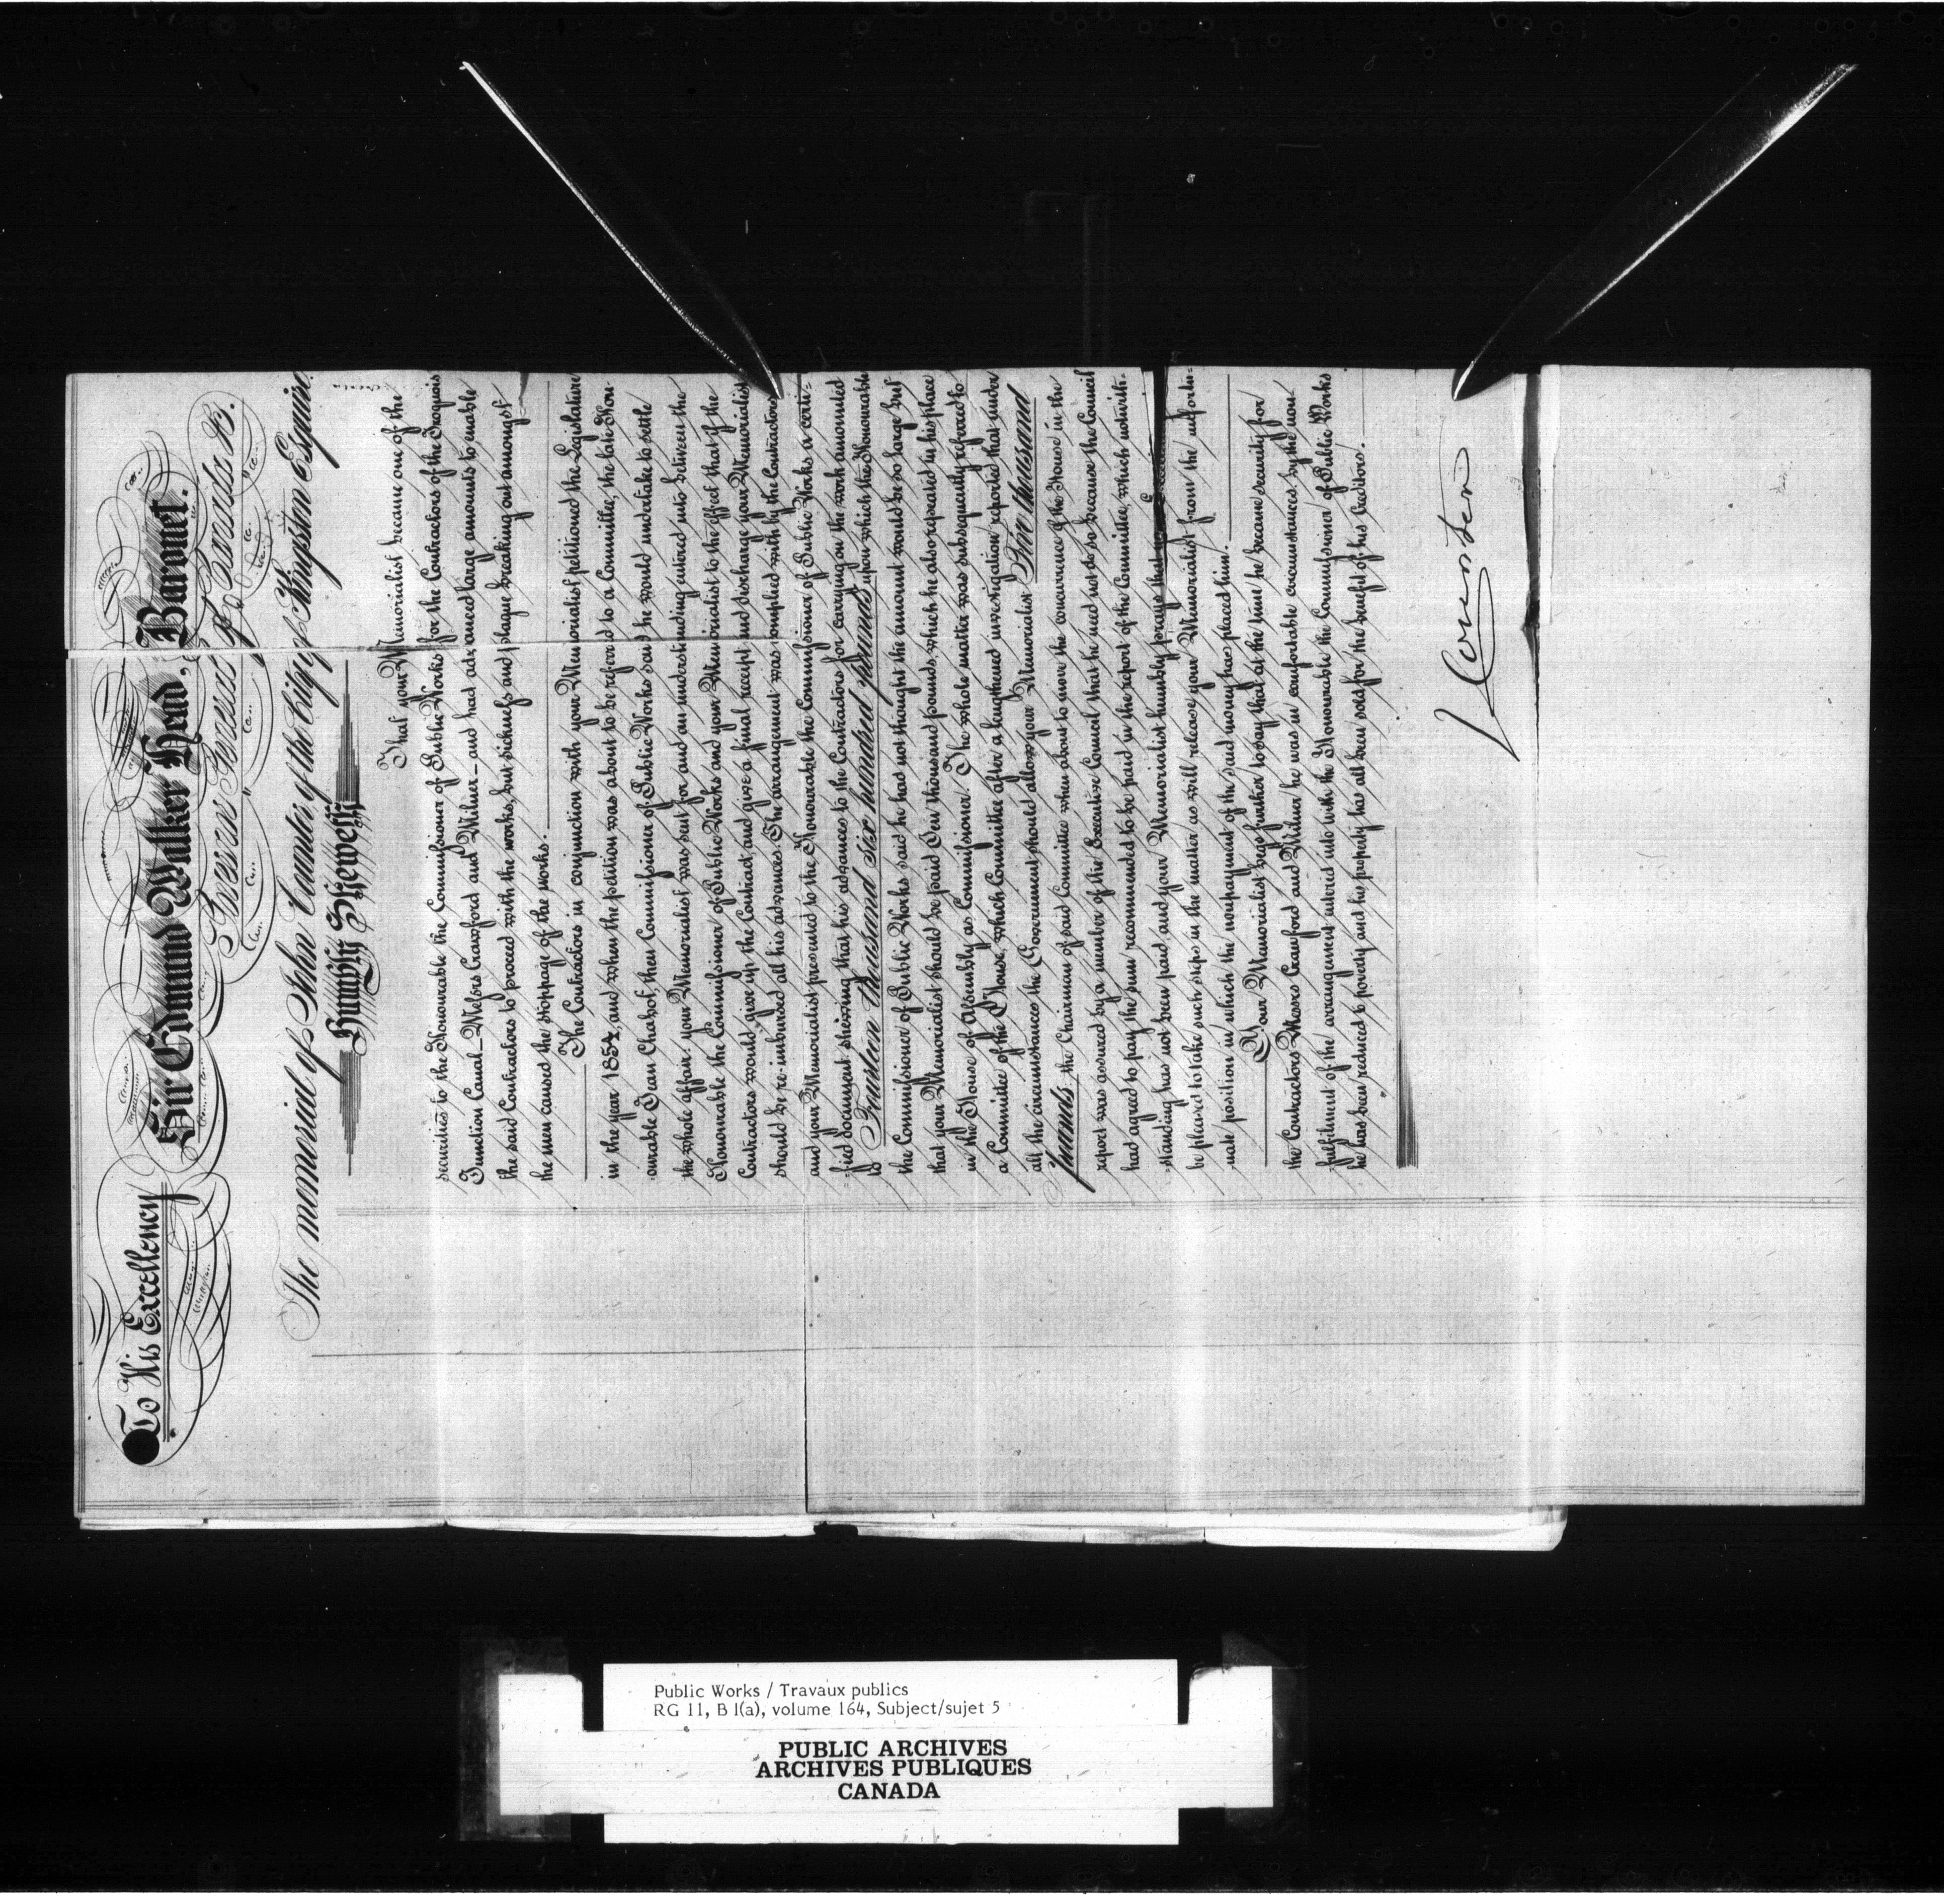 To His Excellency
Sir Edmund Walker Head, Baronet.
Governor General of Canada &c.
&c. &c. &c.
The memorial of John Counter of the City of Kingston Esquire.
Humbly Sheweth
That your Memorialist became one of the
securities to the Honourable the Commissioner of Public Works for the Contractors of the Iroquois
Junction Canal _ Messrs Crawford and Milner _ and had advanced large amounts to enable
the said Contractors to proceed with the works, but sickness and plague breaking out amongst
the men caused the stoppage of the works. _
The Contractors in conjunction with your Memorialist petitioned the Legislature
in the year 1854, and when the petition was about to be referred to a Committee, the late Hon-
ourable Jean Chabot, then Commissioner of Public Works said he would undertake to settle
the whole affair. your Memorialist was sent for and an understanding entered into between the
Honourable the Commissioner of Public Works and your Memorialist to the effect that if the
Contractors would give up the Contract and give a final receipt and discharge your Memorialist
should be re-imbursed all his advances. The arrangement was complied with by the Contractors
and your Memorialist presented to the Honourable the Commissioner of Public Works a certi-
-fied document shewing that his advances to the Contractors for carrying on the work amounted
to Fourteen thousand six hundred pounds upon which the Honourable
the Commissioner of Public Works said he had not thought the amount would be so large but
that your Memorialist should be paid Ten thousand pounds, which he also repeated in his place
in the House of Assembly as Commissioner. The whole matter was subsequently referred to
a Committee of the House, which Committee after a lengthened investigation reported that under
all the circumstances the Government should allow your Memorialist Ten thousand
pounds the Chairman of said Committee when about to move the concurrence of the House in the
report was assured by a member of the Executive Council that he need not do so because the Council
had agreed to pay the sum recommended to be paid in the report of the Committee, which notwith-
-standing has not been paid, and your Memorialist humbly prays that
be pleased to take such steps in the matter as will release your Memorialist from the unfortu-
-nate position in which the nonpayment of the said money has placed him.
Your Memorialist begs further to say that at the time he became security for
the Contractors Messrs Crawford and Milner he was in comfortable circumstances, by the non-
-fulfilment of the arrangement entered into with the Honourable the Commissioner of Public Works
he has been reduced to poverty and his property has all been sold for the benefit of his Creditors.
J Counter
Public Works / Travaux publics
RG 11, B 1(a), volume 164, Subject/sujet 5
PUBLIC ARCHIVES
ARCHIVES PUBLIQUES
CANADA